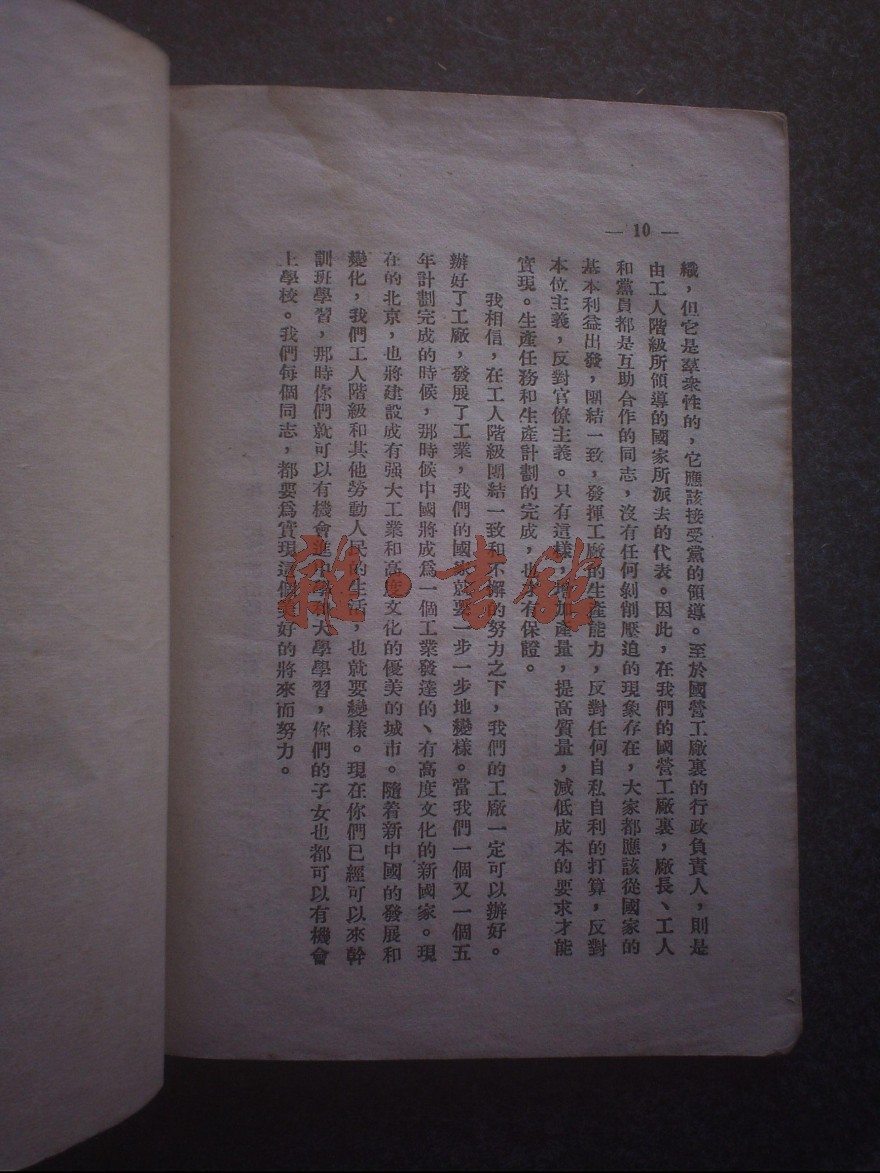 — 10 —
織，但它是羣衆性的，它應該接受黨的領導。至於國營工廠裏的行政負責人，則是
由工人階級所領導的國家所派去的代表。因此，在我們的國營工廠裏，廠長、工人
和黨員都是互助合作的同志，沒有任何剝削壓迫的現象存在，大家都應該從國家的
基本利益出發，團結一致，發揮工廠的生產能力，反對任何自私自利的打算，反對
本位主義，反對官僚主義。只有這樣，增加產量，提高質量，減低成本的要求才能
實現。生產任務和生產計劃的完成，也才有保證。
我相信，在工人階級團結一致和不懈的努力之下，我們的工廠一定可以辦好。
辦好了工廠，發展了工業，我們的國家就要一步一步地變樣。當我們一個又一個五
年計劃完成的時候，那時候中國將成爲一個工業發達的、有高度文化的新國家。現
在的北京，也將建設成有强大工業和高度文化的優美的城市。隨着新中國的發展和
變化，我們工人階級和其他勞動人民的生活，也就要變樣。現在你們已經可以來幹
訓班學習，那時你們就可以有機會進中學和大學學習，你們的子女也都可以有機會
上學校。我們每個同志，都要爲實現這個美好的將來而努力。
雜·書館